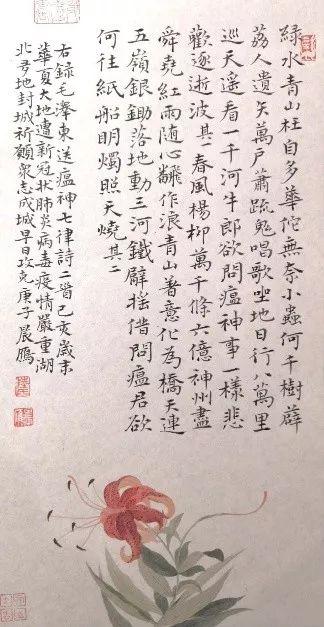 綠水青山枉自多華佗無奈小蟲何千樹薜
荔人遺矢萬戶蕭疏鬼唱歌坐地日行八萬里
巡天遙看一千河牛郎欲問瘟神事一樣悲
歡逐逝波其一春風楊柳萬千條六億神州盡
舜堯紅雨隨心翻作浪青山著意化為橋天連
五嶺銀鋤落地動三河鐵臂搖借問瘟君欲
何往紙船明燭照天燒其二
右錄毛澤東送瘟神七律詩二首己亥歲末
華夏大地遭新冠狀肺炎病毒疫情嚴重湖
北多地封城祈願衆志成城早日攻克庚子晨鵬